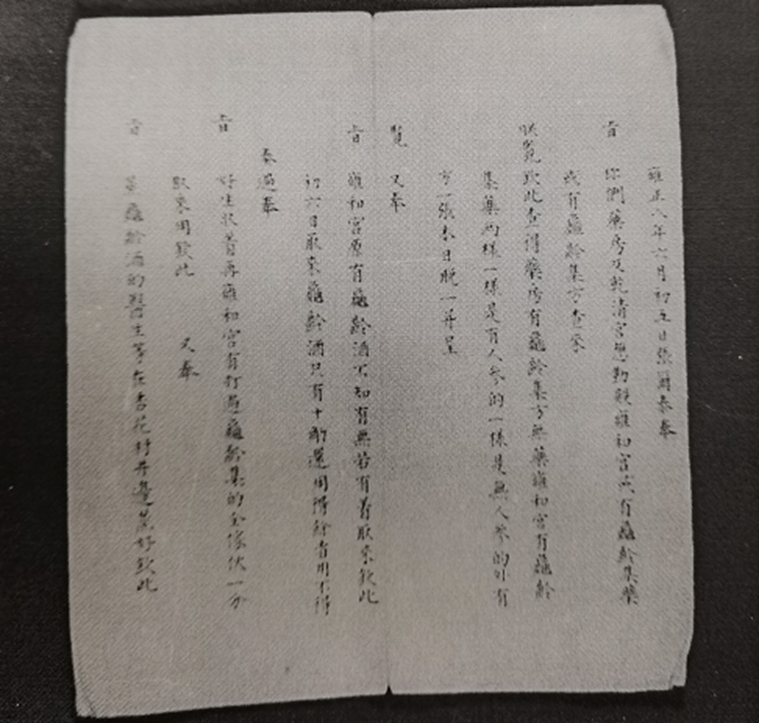 雍正八年六月初五日張爾泰奉
旨 你們藥房及乾清宮懋勤殿雍和宮或有龜齡集藥
或有龜齡集方查來
呈覽欽此查得藥房有龜齡集方無藥雍和宮有龜齡
集藥兩樣一樣是有人參的一樣是無人參的外有
方一張本日晚一并呈
覽 又奉
旨 雍和宮原有龜齡酒不知有無若有着取來欽此
初六日取來龜齡酒只有十觔還用得餘者用不得
奏過奉
旨 好生收着再雍和宮有打過龜齡集的全傢伙一分
取來用欽此 又奉
旨 龜齡酒的醫生等在杏花村井邊蒸好欽此